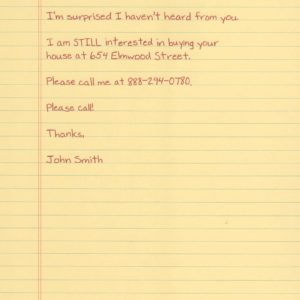 I'm surprised I haven't heard from you.
I am STILL interested in buying your
house at 654 Elmwood Street.
Please call me at 888-294-0780.
Please call!
Thanks,
John Smith